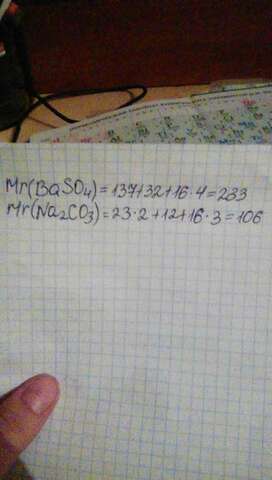 Mr(BaSO₄)=137+32+16·4=233
Mr(Na₂CO₃)=23·2+12+16·3=106